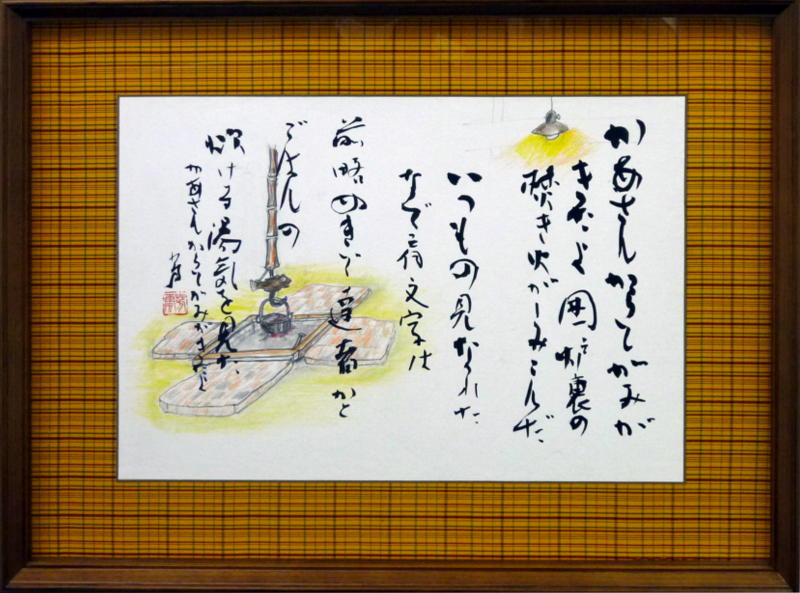 かあさんからてがみが
きたよ 囲炉裏の
焚き火がしみこんだ
いつもの見なれた
なで肩文字は
前略 達者かと
ごはんの
炊ける湯気を見た
かあさんからてがみがきたよ